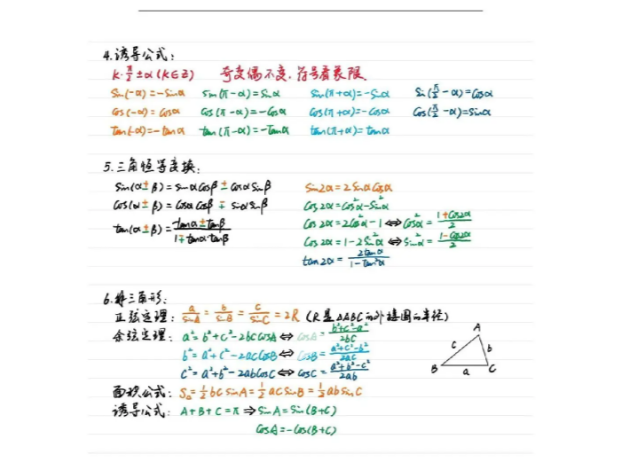 4.诱导公式：
k·π/2±α(k∈Z) 奇变偶不变，符号看象限
Sin(-α)=-Sinα Sin(π-α)=Sinα Sin(π+α)=-Sinα Sin(π/2-α)=Cosα
Cos(-α)=Cosα Cos(π-α)=-Cosα Cos(π+α)=-Cosα Cos(π/2-α)=Sinα
tan(-α)=-tanα tan(π-α)=-tanα tan(π+α)=tanα
5.三角恒等变换：
Sin(α±β)=SinαCosβ±CosαSinβ Sin2α=2SinαCosα
Cos(α±β)=CosαCosβ∓SinαSinβ Cos2α=Cos²α-Sin²α
tan(α±β)=(tanα±tanβ)/(1∓tanαtanβ) Cos2α=2Cos²α-1⇔Cos²α=(1+Cos2α)/2
Cos2α=1-2Sin²α⇔Sin²α=(1-Cos2α)/2
tan2α=2tanα/(1-tan²α)
6.解三角形：
正弦定理：a/SinA=b/SinB=c/SinC=2R (R是△ABC的外接圆的半径)
余弦定理：a²=b²+c²-2bcCosA⇔CosA=(b²+c²-a²)/2bc
b²=a²+c²-2acCosB⇔CosB=(a²+c²-b²)/2ac
c²=a²+b²-2abCosC⇔CosC=(a²+b²-c²)/2ab
A
c b
B a C
面积公式：S△=1/2bcSinA=1/2acSinB=1/2abSinC
诱导公式：A+B+C=π⇒SinA=Sin(B+C)
CosA=-Cos(B+C)